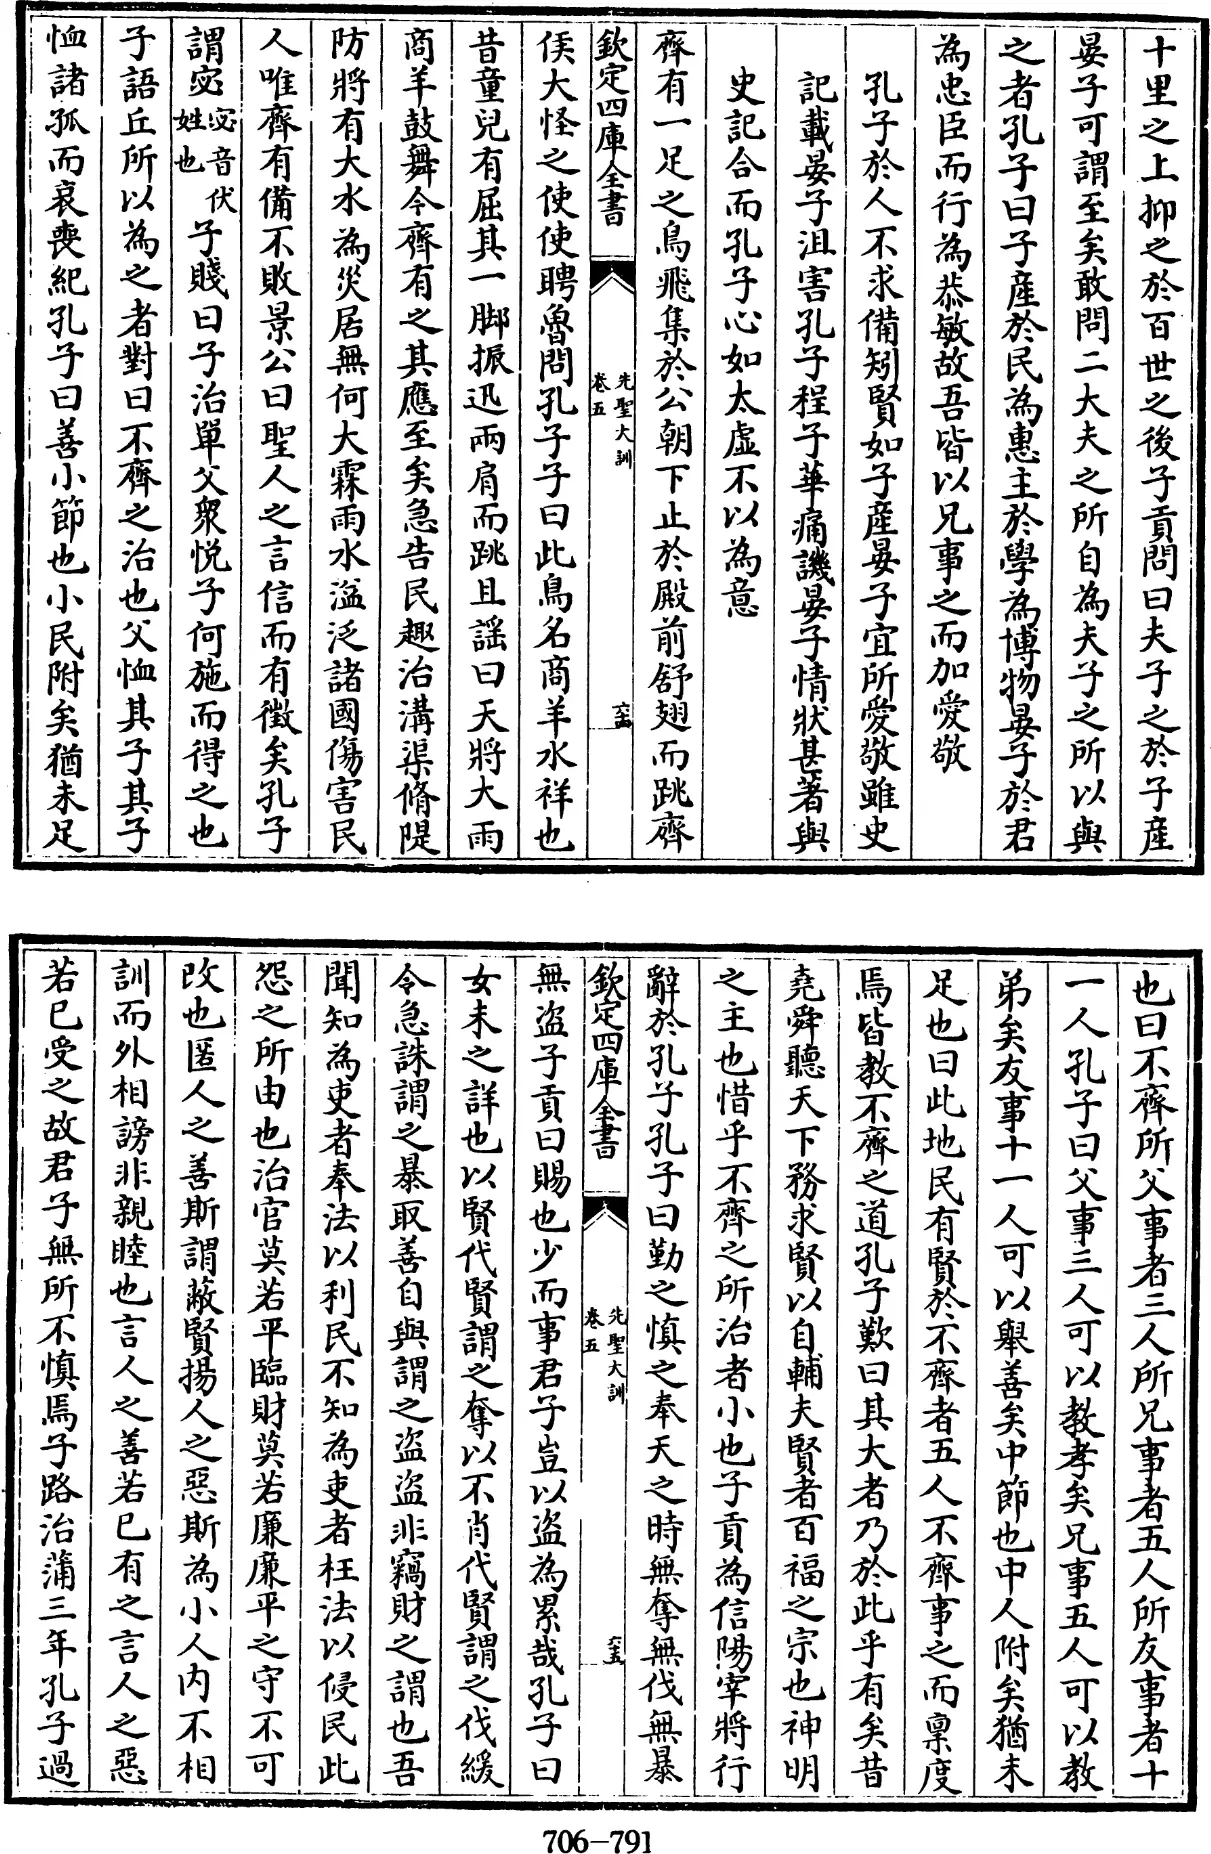 十里之上抑之於百世之後子貢問曰夫子之於子産
晏子可謂至矣敢問二大夫之所自為夫子之所以與
之者孔子曰子産於民為惠主於學為博物晏子於君
為忠臣而行為恭敏故吾皆以兄事之而加愛敬
孔子於人不求備矧賢如子産晏子宜所愛敬雖史
記載晏子沮害孔子程子華痛譏晏子情狀甚著與
史記合而孔子心如太虚不以為意
齊有一足之鳥飛集於公朝下止於殿前舒翅而跳齊
欽定四庫全書
先聖大訓
卷五
六十四
侯大怪之使使聘魯問孔子子曰此鳥名商羊水祥也
昔童兒有屈其一脚振迅兩肩而跳且謡曰天將大雨
商羊鼓舞今齊有之其應至矣急告民趣治溝渠脩隄
防將有大水為災居無何大霖雨水溢泛諸國傷害民
人唯齊有備不敗景公曰聖人之言信而有徴矣孔子
謂宓宓音伏姓也子賤曰子治單父衆悦子何施而得之也
子語丘所以為之者對曰不齊之治也父恤其子其子
恤諸孤而哀喪紀孔子曰善小節也小民附矣猶未足
也曰不齊所父事者三人所兄事者五人所友事者十
一人孔子曰父事三人可以教孝矣兄事五人可以教
弟矣友事十一人可以舉善矣中節也中人附矣猶未
足也曰此地民有賢於不齊者五人不齊事之而稟度
焉皆教不齊之道孔子歎曰其大者乃於此乎有矣昔
堯舜聽天下務求賢以自輔夫賢者百福之宗也神明
之主也惜乎不齊之所治者小也子貢為信陽宰將行
辭於孔子孔子曰勤之慎之奉天之時無奪無伐無暴
欽定四庫全書
先聖大訓
卷五
六十五
無盗子貢曰賜也少而事君子豈以盗為累哉孔子曰
女未之詳也以賢代賢謂之奪以不肖代賢謂之伐緩
令急誅謂之暴取善自與謂之盗盗非竊財之謂也吾
聞知為吏者奉法以利民不知為吏者枉法以侵民此
怨之所由也治官莫若平臨財莫若廉廉平之守不可
改也匿人之善斯謂蔽賢揚人之惡斯為小人内不相
訓而外相謗非親睦也言人之善若已有之言人之惡
若已受之故君子無所不慎焉子路治蒲三年孔子過
706-791